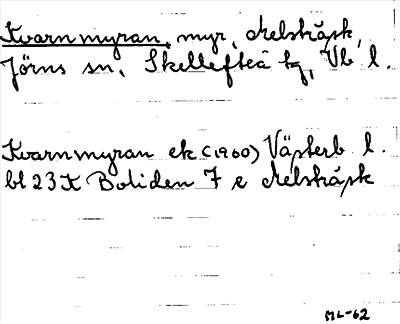 Kvarnmyran, myr, Melsträsk,
Jörns sn, Skellefteå kg, Vb l.
Kvarnmyran ek (1960) Västerb l.
bl 23 K Boliden 7 e Melsträsk
ML-62